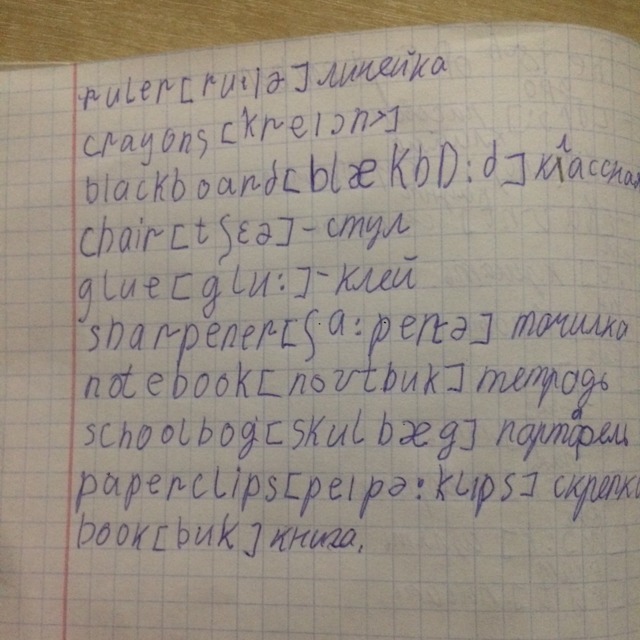 ruler [ru:lə] линейка
crayons [kreɪɔn>]
blackboard [blækbD:d] классная
chair [tʃɛə] - стул
glue [glu:] - клей
sharpener [ʃa:penə] точилка
notebook [novtbuk] тетрадь
schoolbog [skulbæg] портфель
paperclips [peɪpə:klɪps] скрепки
book [buk] книга.